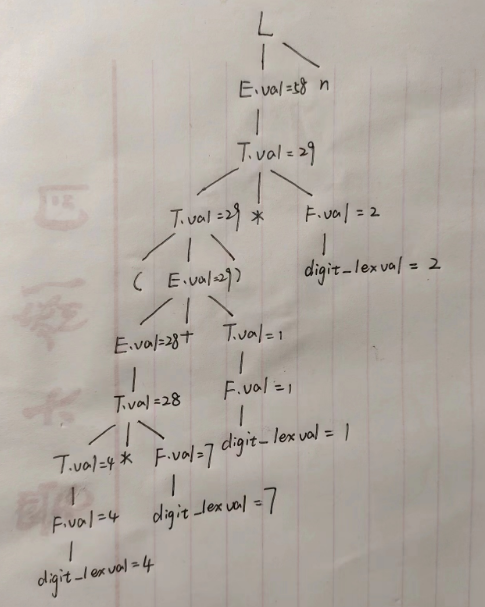 L
E.val=58 n
T.val=29
T.val=29 * F.val=2
( E.val=29) digit_lexval = 2
E.val=28 + T.val=1
T.val=28 F.val=1
T.val=4 * F.val=7 digit_lexval = 1
F.val=4 digit_lexval = 7
digit_lexval = 4